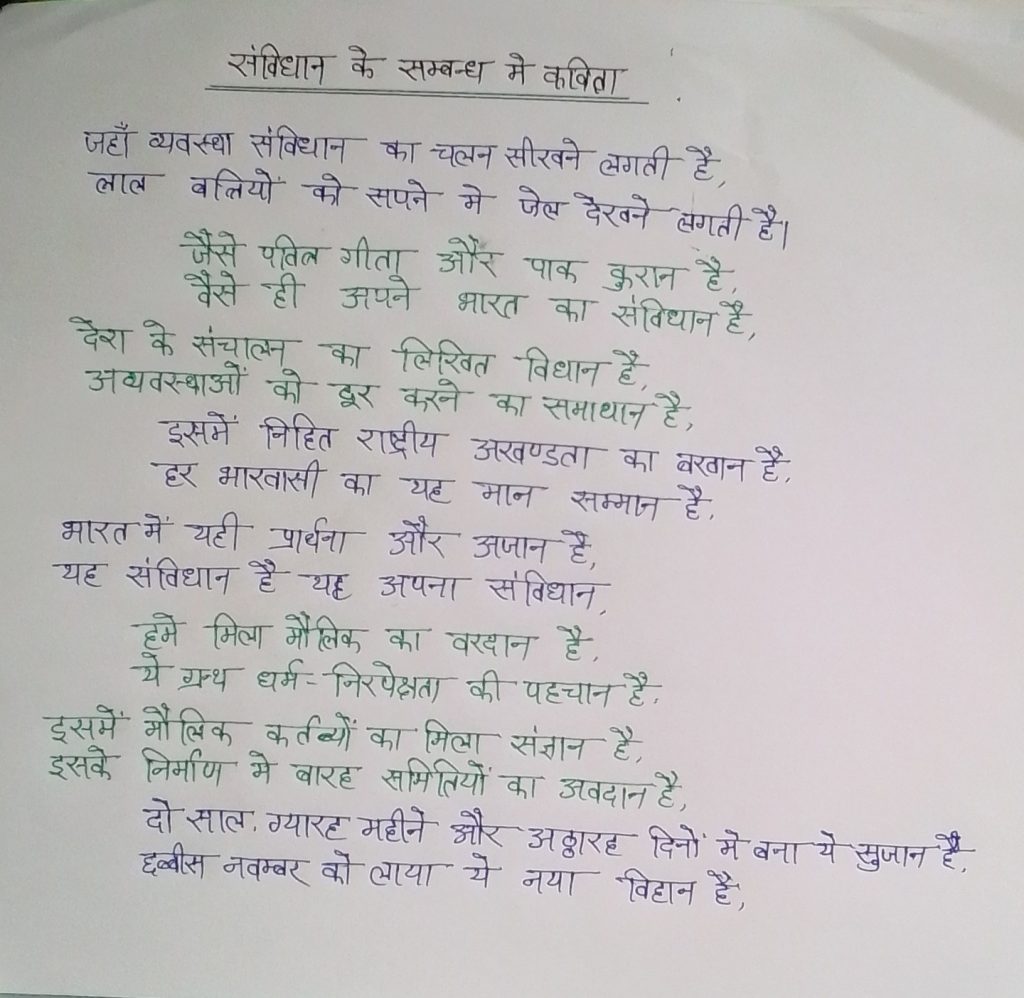 संविधान के सम्बन्ध मे कविता
जहाँ व्यवस्था संविधान का चलन सीखने लगती है,
लाल बत्तियों को सपने मे जेल देखने लगती है।
जैसे पवित्र गीता और पाक कुरान है,
वैसे ही अपने भारत का संविधान है,
देश के संचालन का लिखित विधान है,
अव्यवस्थाओं को दूर करने का समाधान है,
इसमें निहित राष्ट्रीय अखण्डता का बखान है,
हर भारवासी का यह मान सम्मान है,
भारत में यही प्रार्थना और अजान है,
यह संविधान है यह अपना संविधान,
हमे मिला मौलिक का वरदान है,
ये ग्रन्थ धर्म-निरपेक्षता की पहचान है,
इसमें मौलिक कर्तव्यों का मिला संज्ञान है,
इसके निर्माण मे बारह समितियों का अवदान है,
दो साल, ग्यारह महीने और अठ्ठारह दिनों मे बना ये सुजान है,
छब्बीस नवम्बर को लाया ये नया विहान है,